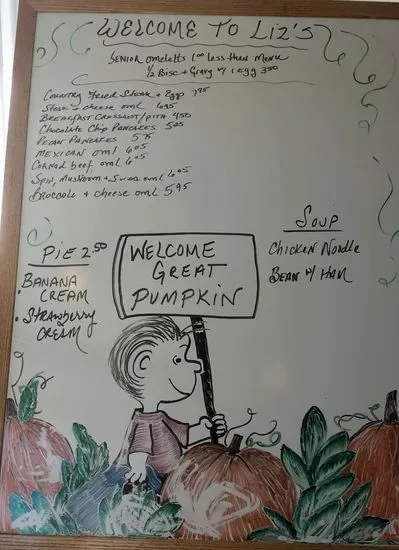 WELCOME TO LIZ'S
SENIOR omeletts 1.00 less than menu
1/2 Bisc + Gravy w/ 1 egg 3.50
Country Fried Steak + Eggs 7.95
Steak + cheese oml 6.95
BREAKFAST CROSSANT/PITA 4.50
Chocolate Chip Pancakes 5.25
Pecan Pancakes
MEXICAN oml 6.05
Corned beef oml 6.05
Spin, Mushroom + Swiss oml 6.05
Broccoli + cheese oml 5.95
Soup
Chicken Noodle
Bean w/ Ham
PIE 2.50
BANANA CREAM
• Strawberry CREAM
WELCOME
GREAT
PUMPKIN